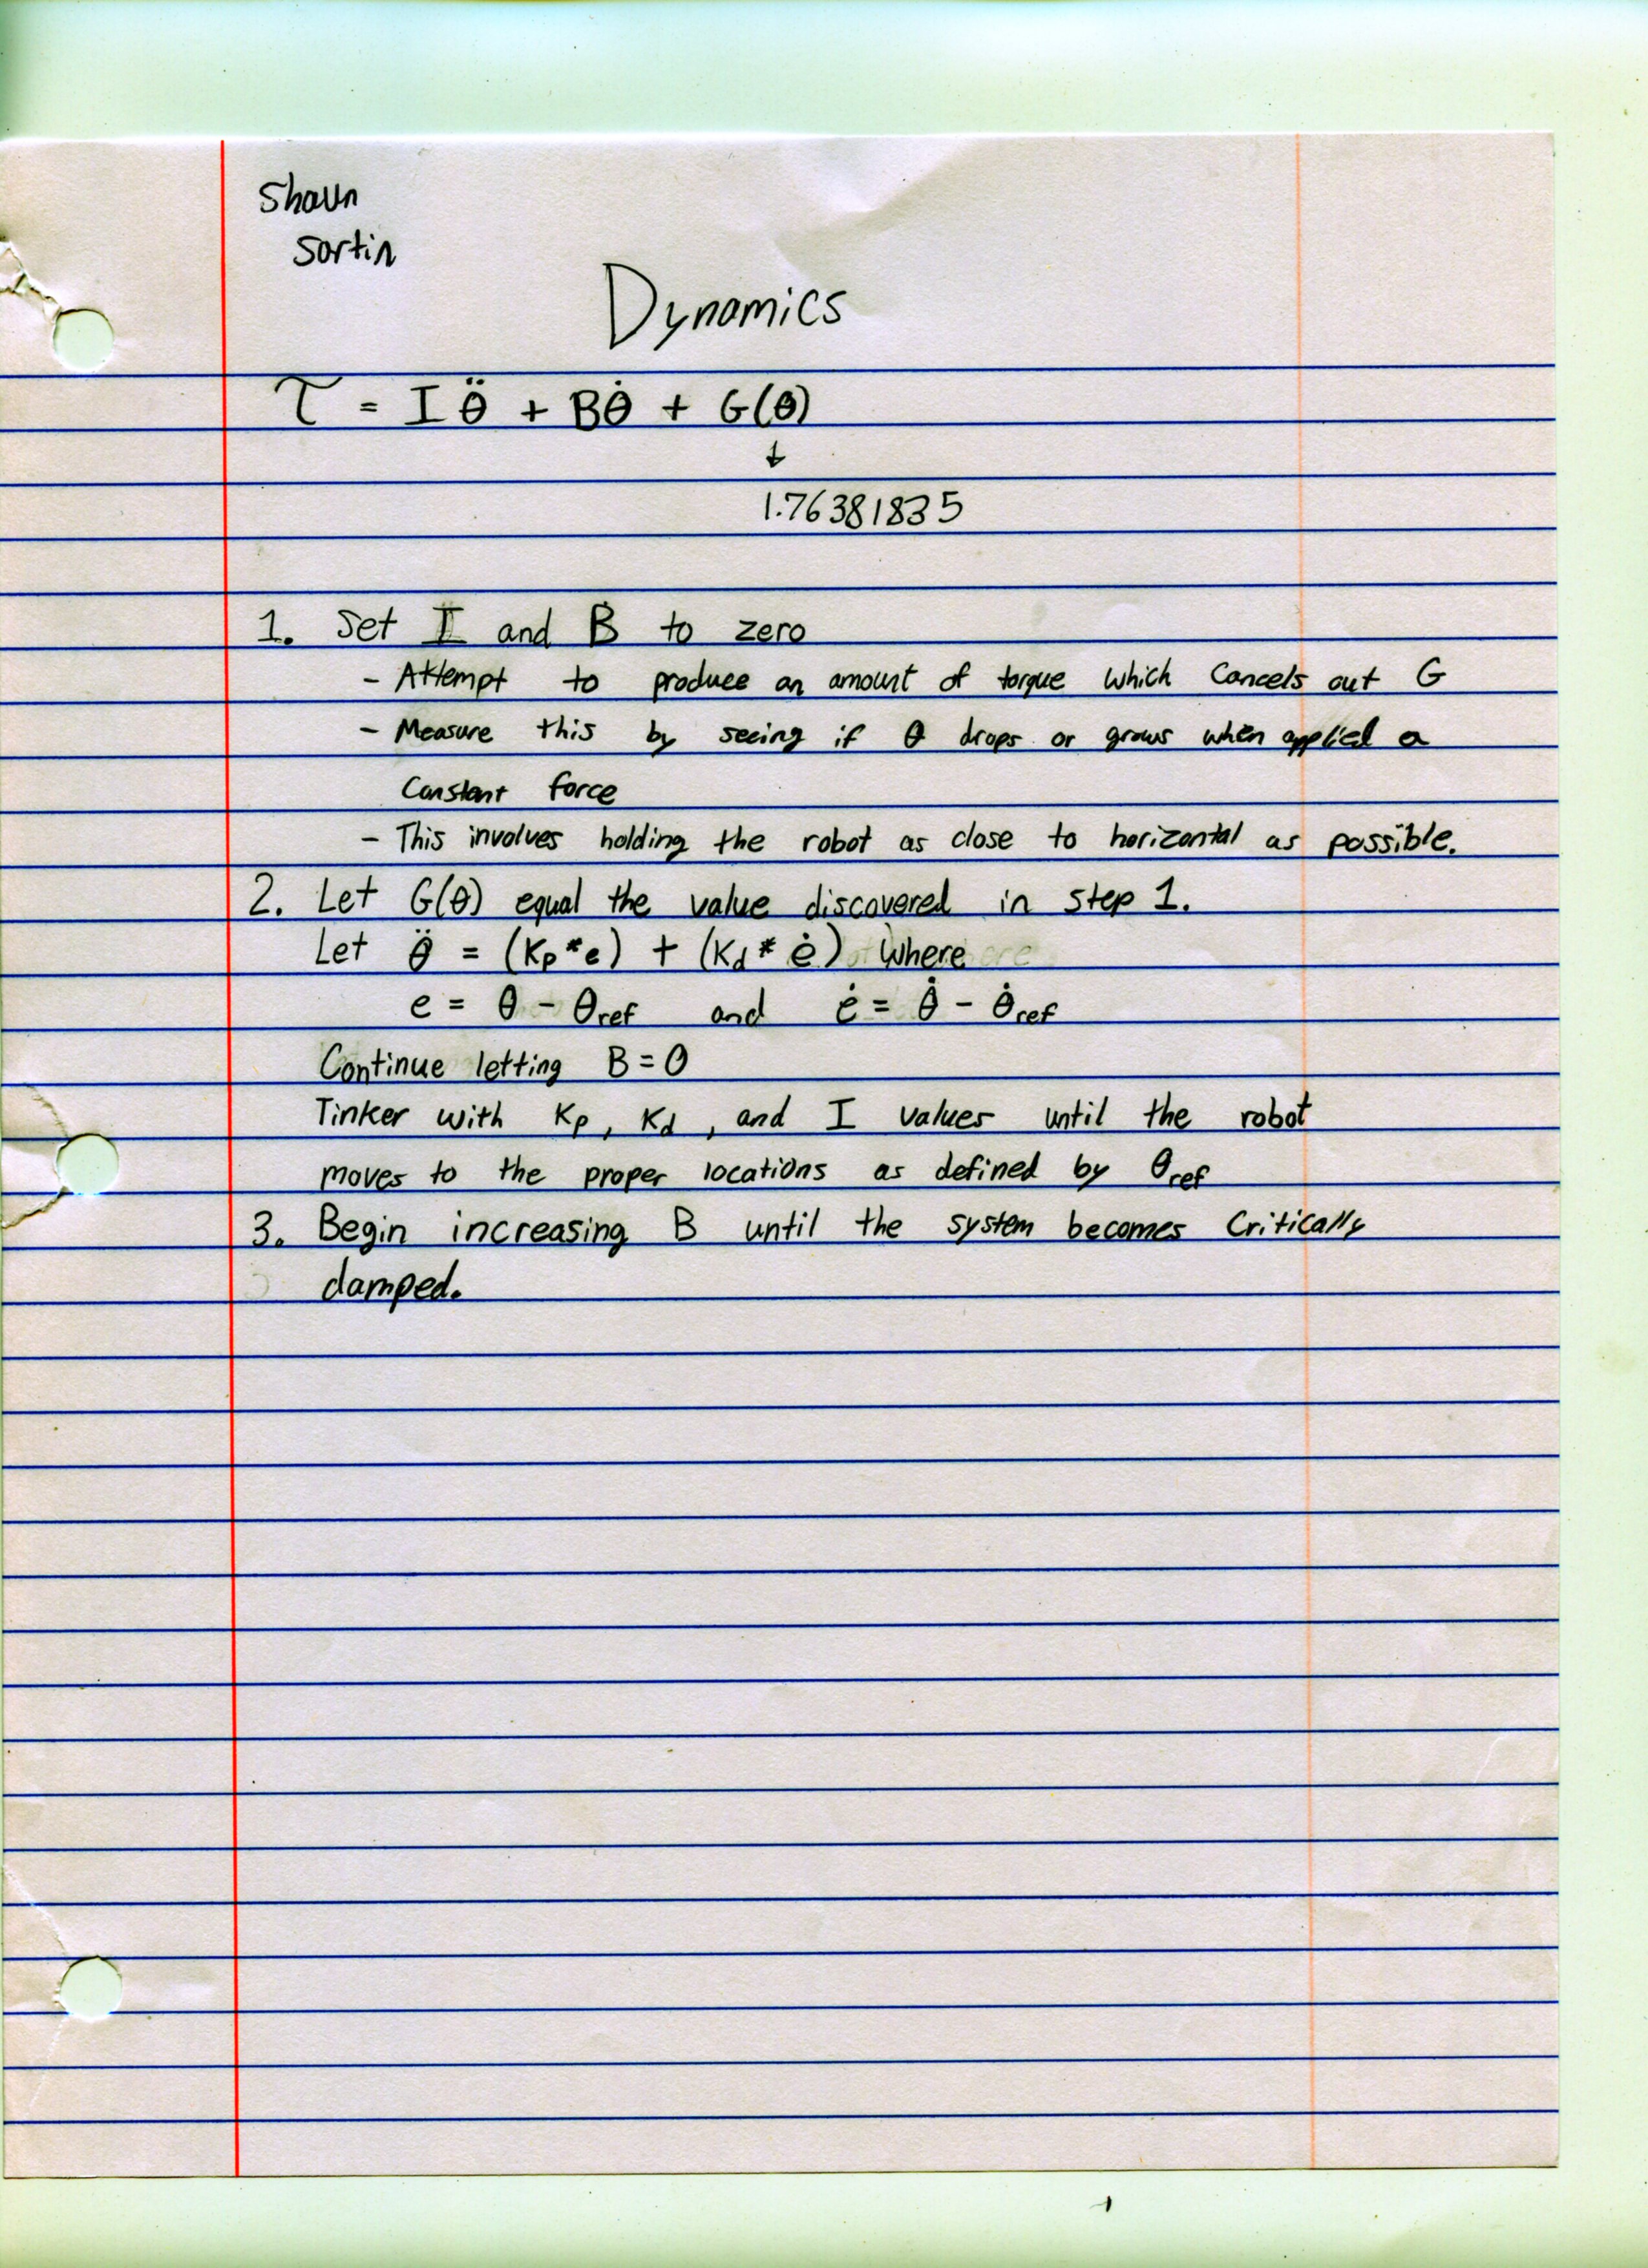 Shaun
Sortin
Dynamics
τ = I θ̈ + Bθ̇ + G(θ)
↓
1.76381835
1. Set I and B to zero
- Attempt to produce an amount of torque which cancels out G
- Measure this by seeing if θ drops or grows when applied a
constant force
- This involves holding the robot as close to horizontal as possible.
2. Let G(θ) equal the value discovered in step 1.
Let θ̈ = (Kp * e) + (Kd * ė) where
e = θ - θref and ė = θ̇ - θ̇ref
Continue letting B = 0
Tinker with Kp, Kd, and I values until the robot
moves to the proper locations as defined by θref
3. Begin increasing B until the system becomes critically
damped.